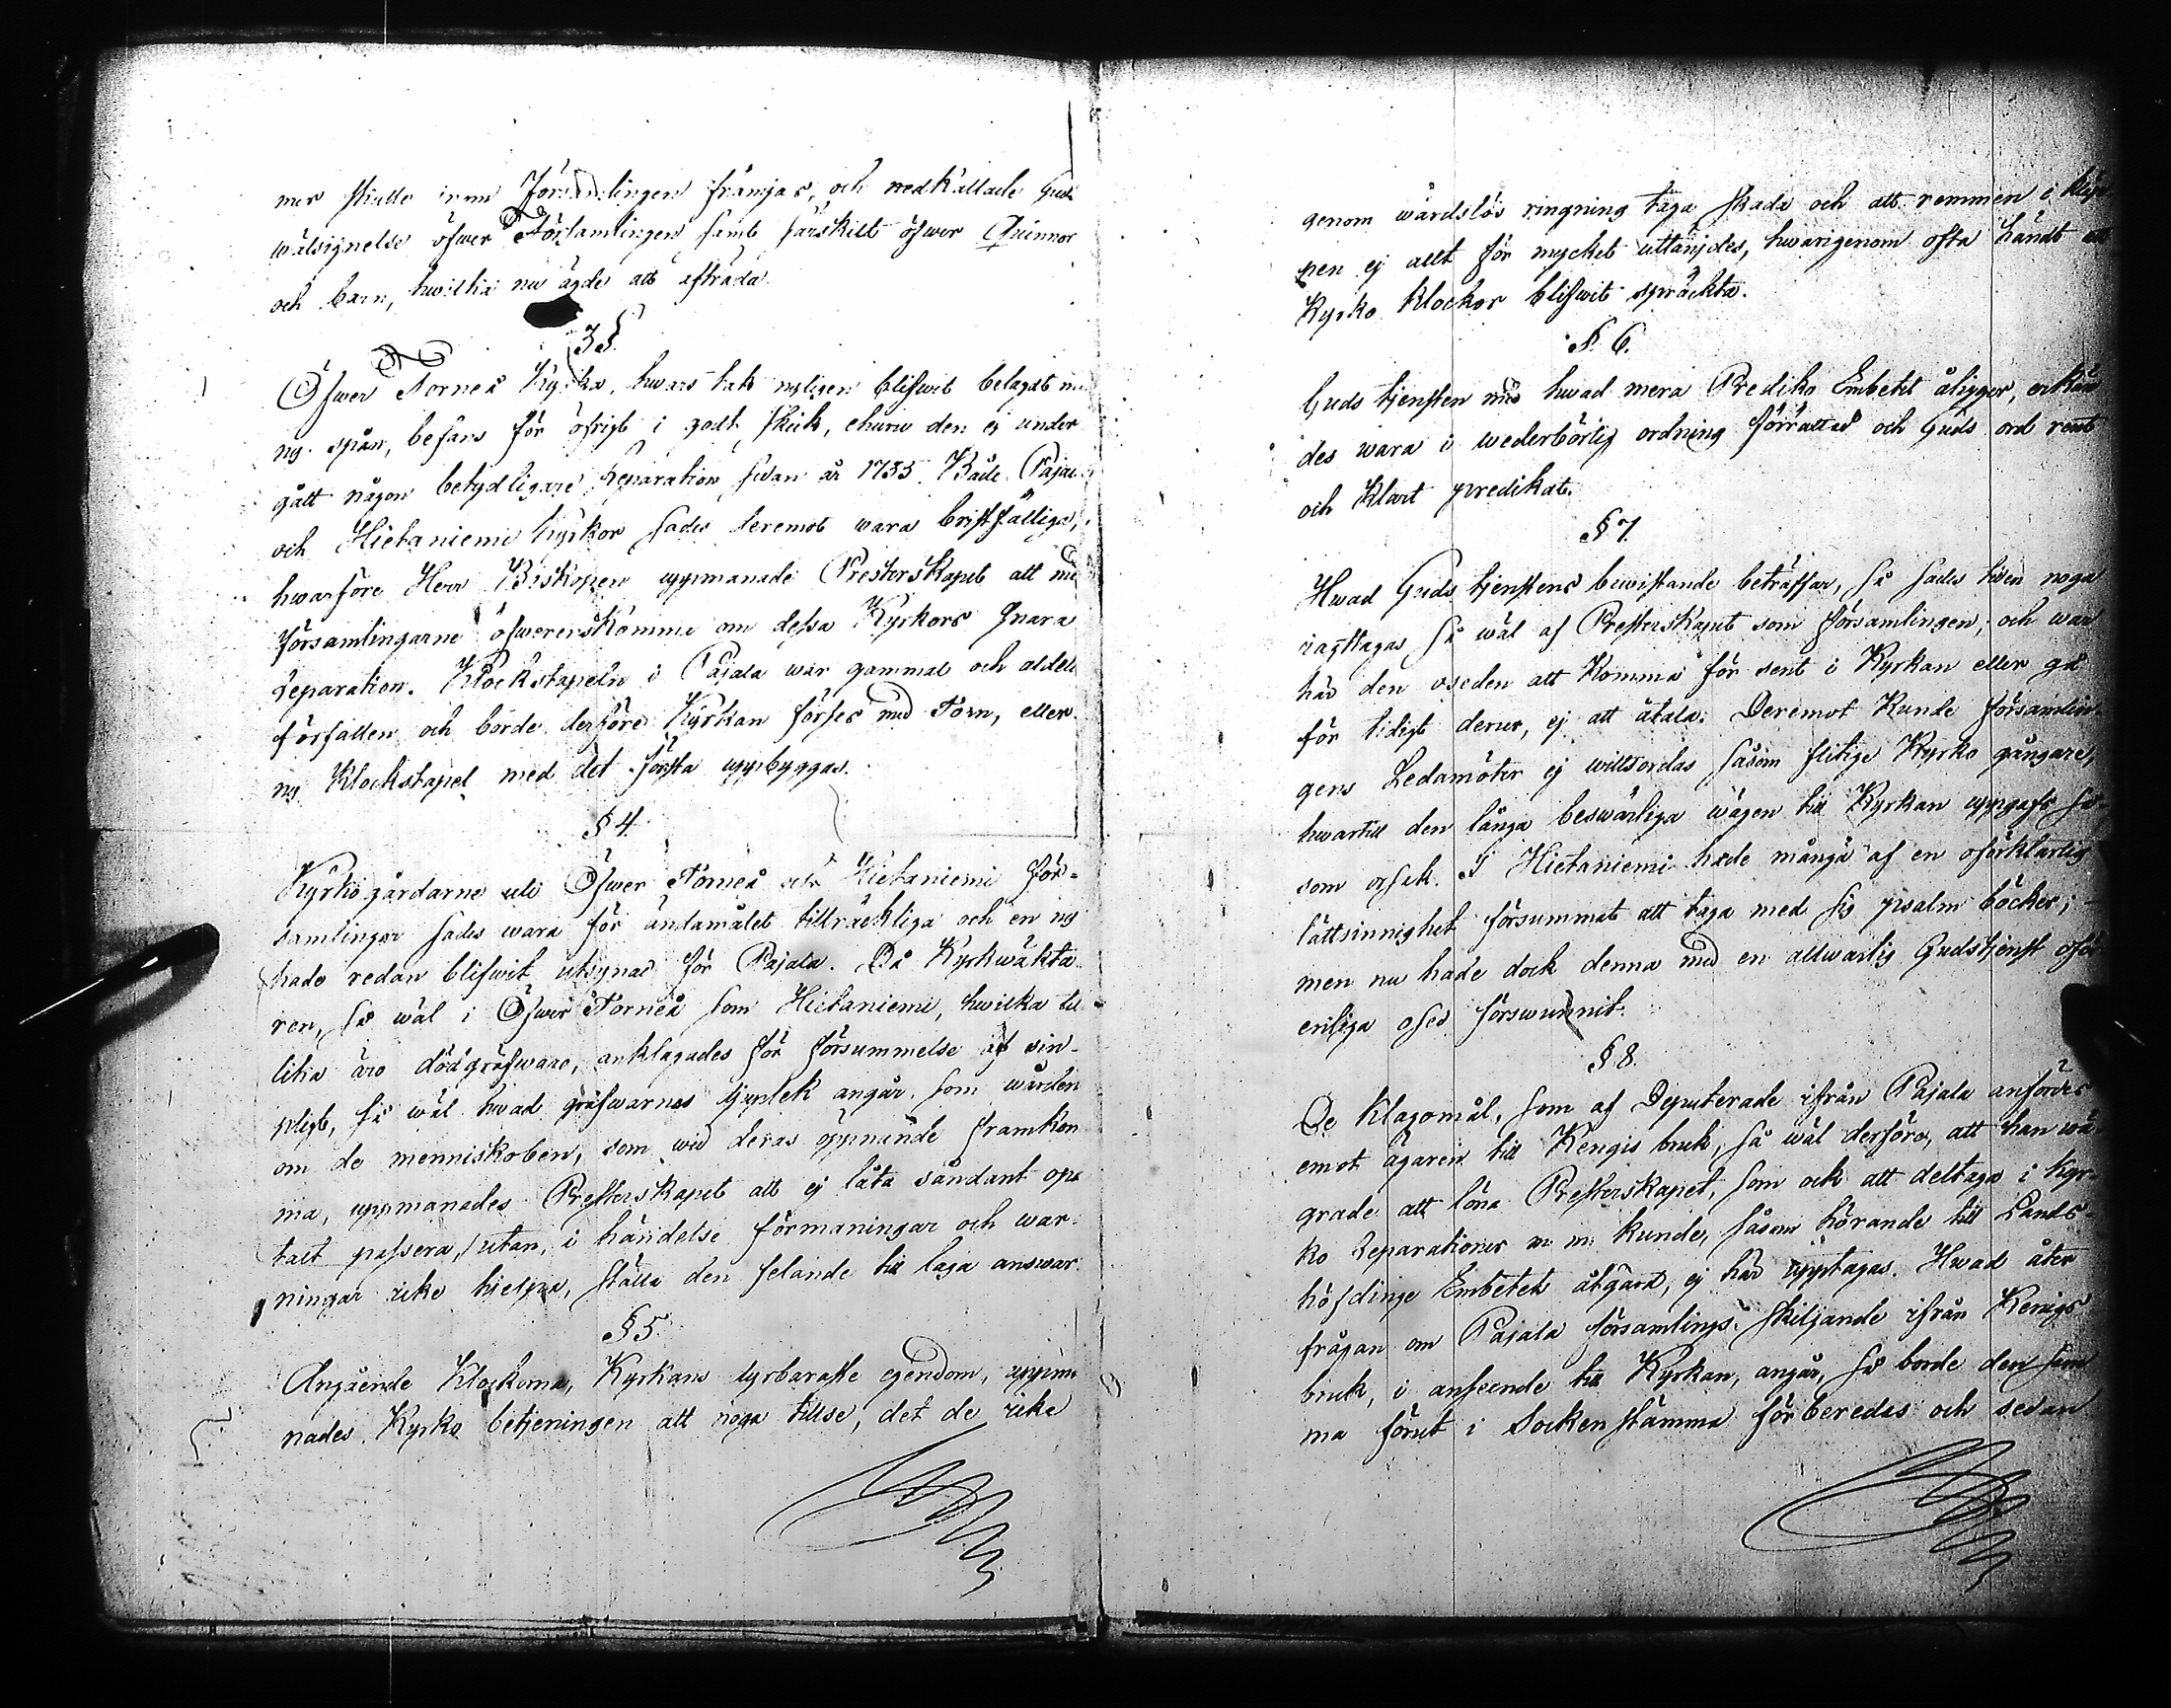 mer skulle inom Församlingen främjas, och nedkallade Guds
wälsignelse öfwer Församlingen samt särskilt öfwer Quinnor
och barn, hwilka nu ägde att afträda.
3 §.
Öfwer Torneå Kyrka, hwars tak nyligen blifwit belagdt med
ny spån, befans för öfrigt i godt skick, ehuru den ej under
gått någon betydligare Reparation sedan år 1735. Både Pajala
och Hietaniemi kyrkor sades deremot wara bristfälliga,
hwarföre Herr Biskopen uppmanade Presterskapet att med
församlingarne öfwerenskomma om dessa Kyrkors snara
Reparation. Klockstapeln i Pajala war gammal och aldeles
förfallen och borde derföre Kyrkan förses med Torn, eller
ny Klockstapel med det första uppbyggas.
§ 4.
Kyrkogårdarne uti Öfwer Torneå och Hietaniemi För-
samlingar sades wara för ändamålet tillräckliga och en ny
hade redan blifwit utsynad för Pajala. Då Kyrkwäkta
ren, så wäl i Öfwer Torneå som Hietaniemi, hwilka til
lika äro dödgräfware, anklagades för försummelse af sin
pligt, så wäl hwad grafwarnes djuplek angår, som wården
om de menniskoben, som wid deras öppnande framkom
ma, uppmanades Presterskapet att ej låta sådant opå
talt passera, utan, i händelse förmaningar och war-
ningar icke hielpa, ställa den felande till laga answar.
§ 5.
Angående Klockorna, Kyrkans dyrbaraste egendom, uppma
nades Kyrko betjeningen att noga tillse, det de icke
genom wårdslös ringning taga skada och att remmen i kläp
pen ej allt för mycket uttänjdes, hwarigenom ofta händt att
Kyrko Klockor blifwit spräckta.
§. 6.
Guds tjensten med hwad mera Prediko Embetet åligger, erkän
des wara i wederbörlig ordning förrättad och Guds ord rent
och klart predikat.
§ 7.
Hwad Guds tjenstens bewistande beträffar, så sades tiden noga
iagttagas så wäl af Presterskapet som församlingen, och war
här den oseden att komma för sent i Kyrkan eller gå
för tidigt derur, ej att åtala. Deremot kunde församlin-
gens Ledamöter ej witsordas såsom flitige Kyrko gångare,
hwartill den långa beswärliga wägen till Kyrkan uppgafs så-
som orsak. I Hietaniemi hade många af en oförklarlig
lättsinnighet försummat att taga med sig psalm böcker;
men nu hade dock denna med en allwarlig Gudstjenst oför
enliga osed förswunnit.
§ 8.
De Klagomål, som af Deputerade ifrån Pajala anfördes
emot ägaren till Kengis bruk, så wäl derföre, att han wä-
grade att löna Presterskapet, som ock att deltaga i kyr-
ko Reparationer m m kunde, såsom hörande till Lands-
höfdinge Embetets åtgärd, ej här upptagas. Hwad åter
frågan om Pajala församlings skiljande ifrån Kengis
bruk, i anseende till Kyrkan, angår, så borde den sam
ma först i Sockenstämma förberedas och sedan